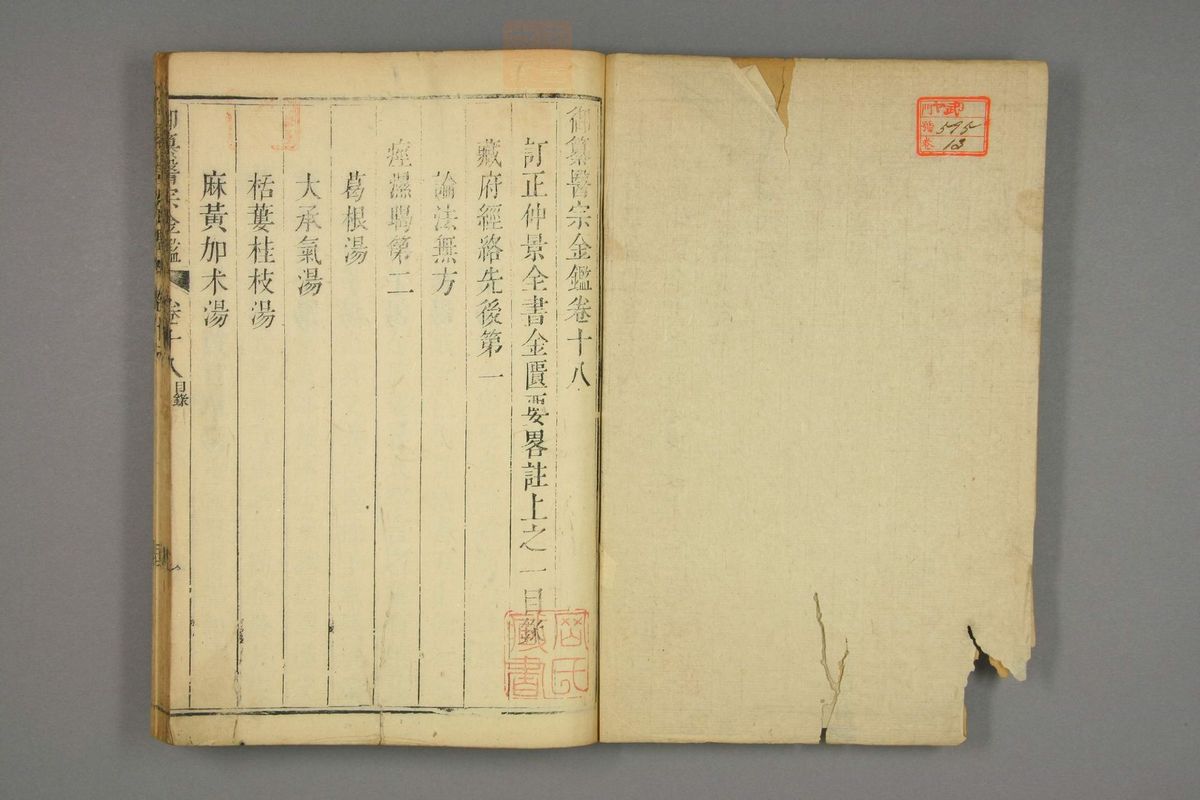 御纂醫宗金鑑卷十八
訂正仲景全書金匱要畧註上之一目錄
藏府經絡先後第一
論法無方
痙濕暍第二
葛根湯
大承氣湯
栝蔞桂枝湯
麻黃加朮湯
卷十八
目錄
藏書
595
13